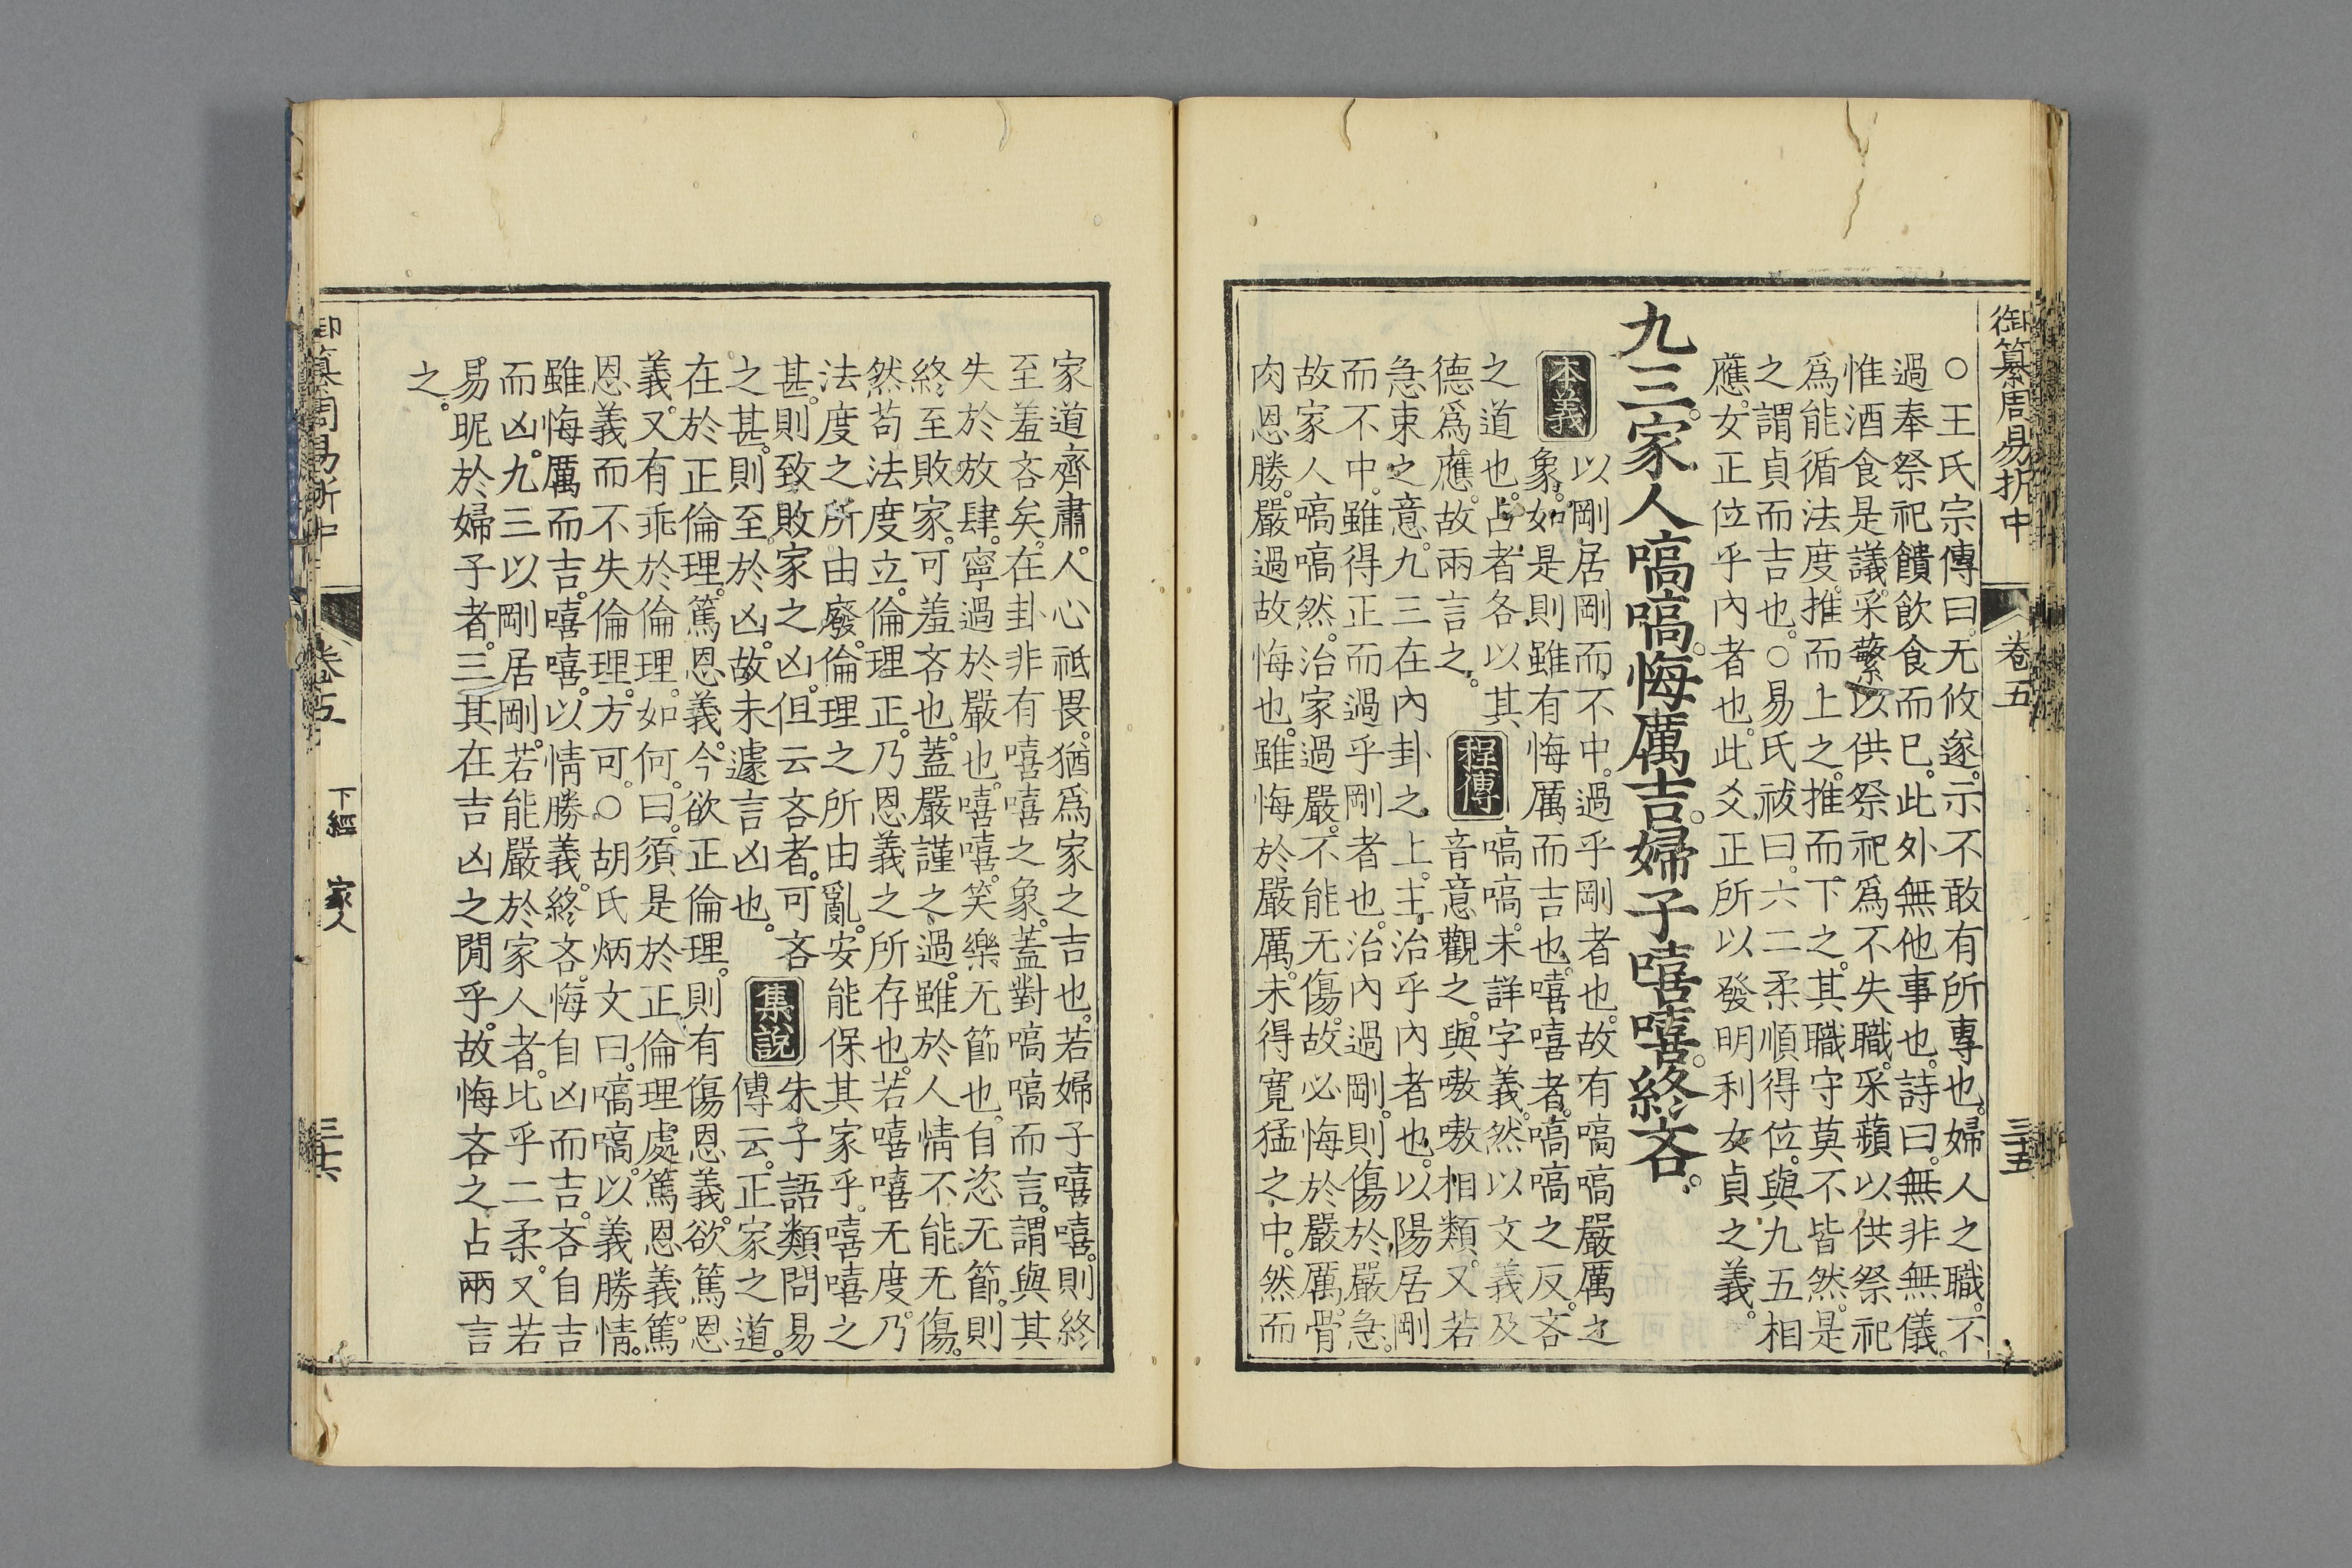 御纂周易折中 卷五 三十五
○王氏宗傳曰。无攸遂。示不敢有所專也。婦人之職。不
過奉祭祀饋飲食而已。此外無他事也。詩曰。無非無儀。
惟酒食是議。采蘩以供祭祀爲不失職。采蘋以供祭祀
爲能循法度。推而上之。推而下之。其職守莫不皆然。是
之謂貞而吉也。○易氏祓曰。六二柔順得位。與九五相
應。女正位乎內者也。此爻正所以發明利女貞之義。
九三。家人嗃嗃。悔厲吉。婦子嘻嘻。終吝。
本義
以剛居剛而不中。過乎剛者也。故有嗃嗃嚴厲之
象。如是則雖有悔厲而吉也。嘻嘻者。嗃嗃之反。吝
之道也。占者各以其
德爲應。故兩言之。
程傳
嗃嗃。未詳字義。然以文義及
音意觀之。與嗷嗷相類。又若
急束之意。九三在內卦之上。主治乎內者也。以陽居剛
而不中。雖得正而過乎剛者也。治內過剛。則傷於嚴急。
故家人嗃嗃然。治家過嚴。不能无傷。故必悔於嚴厲。骨
肉恩勝。嚴過故悔也。雖悔於嚴厲。未得寬猛之中。然而
家道齊肅。人心祗畏。猶爲家之吉也。若婦子嘻嘻。則終
至羞吝矣。在卦非有嘻嘻之象。蓋對嗃嗃而言。謂與其
失於放肆。寧過於嚴也。嘻嘻。笑樂无節也。自恣无節。則
終至敗家。可羞吝也。蓋嚴謹之過。雖於人情不能无傷。
然苟法度立。倫理正。乃恩義之所存也。若嘻嘻无度。乃
法度之所由廢。倫理之所由亂。安能保其家乎。嘻嘻之
甚。則致敗家之凶。但云吝者。可吝
之甚。則至於凶。故未遽言凶也。
集說
朱子語類問易
傳云。正家之道。
在於正倫理。篤恩義。今欲正倫理。則有傷恩義。欲篤恩
義。又有乖於倫理。如何。曰。須是於正倫理處篤恩義。篤
恩義而不失倫理。方可。○胡氏炳文曰。嗃嗃。以義勝情。
雖悔厲而吉。嘻嘻。以情勝義。終吝。悔自凶而吉。吝自吉
而凶。九三以剛居剛。若能嚴於家人者。比乎二柔。又若
易昵於婦子者。三其在吉凶之閒乎。故悔吝之占兩言
之。
御纂周易折中 卷五 下經 家人 三十六